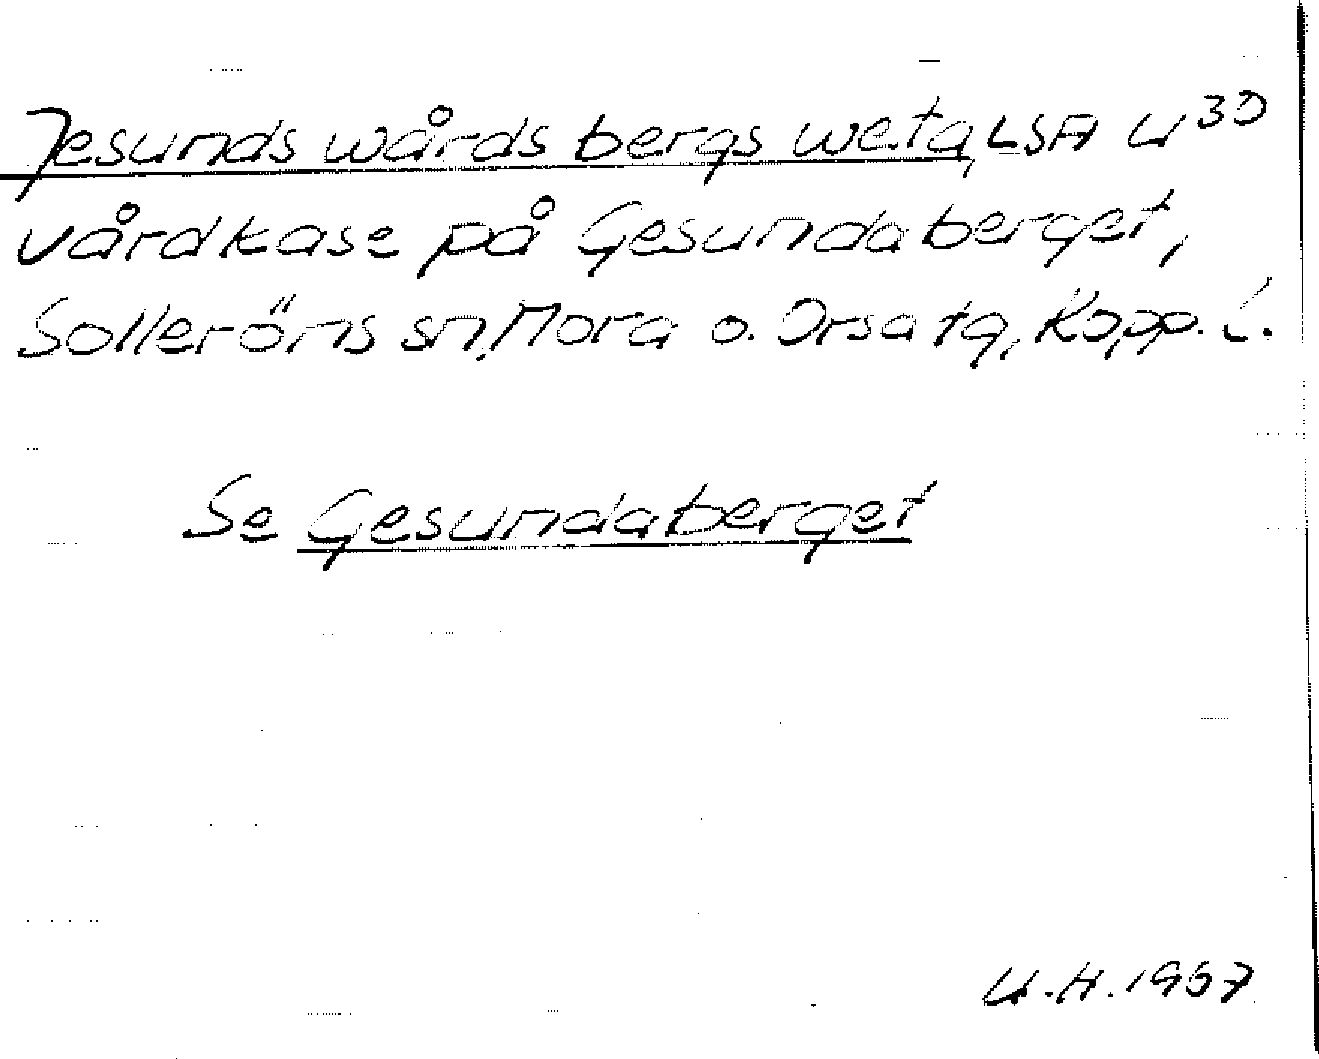 Jesunds wårds bergs weta, LSA U 30
vårdkase på Gesundaberget,
Solleröns sn, Mora o. Orsa tg, Kopp. l.
Se Gesundaberget
U.H. 1967